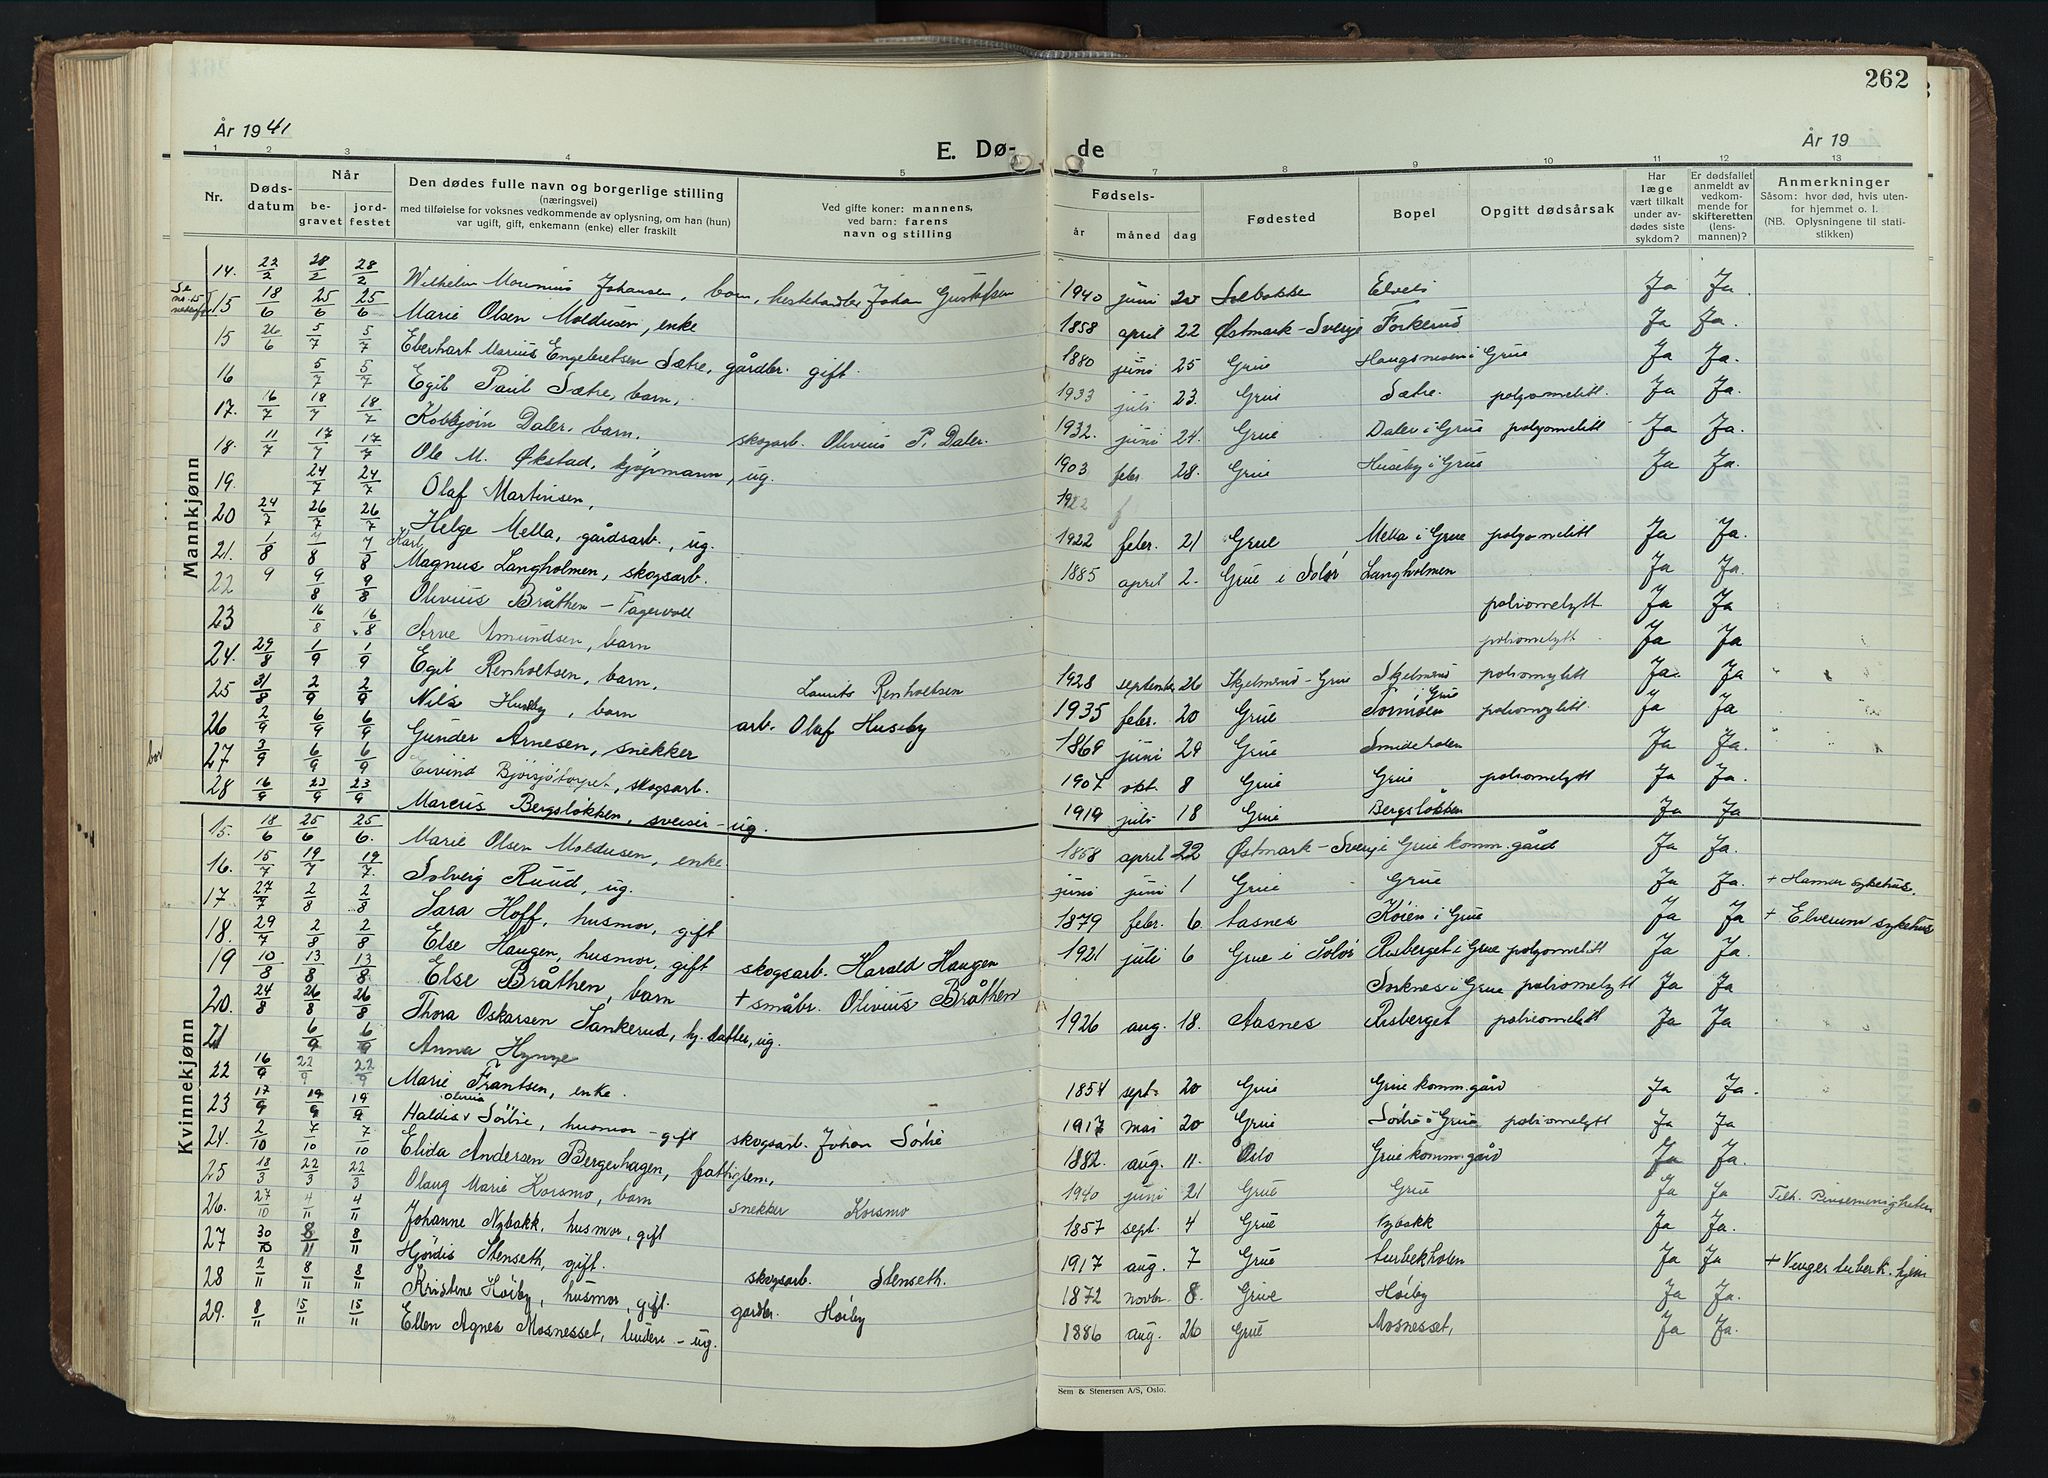 262
År 1941
År 19
E. Dø-
de
1 2 3 4 5 7 8 9 10 11 12 13
Nr.
Døds-
datum
Når
be-
gravet
jord-
festet
Den dødes fulle navn og borgerlige stilling
(næringsvei)
med tilføielse for voksnes vedkommende av oplysning, om han (hun)
var ugift, gift, enkemann (enke) eller fraskilt
Ved gifte koner: mannens,
ved barn: farens
navn og stilling
Fødsels-
år måned dag
Fødested
Bopel
Opgitt dødsårsak
Har
læge
vært tilkalt
under av-
dødes siste
sykdom?
Er dødsfallet
anmeldt av
vedkom-
mende for
skifteretten
(lens-
mannen)?
Anmerkninger
Såsom: hvor død, hvis uten-
for hjemmet o. l.
(NB. Oplysningene til stati-
stikken)
Mannkjønn
14. 22/2 28/2 28/2 Wilhelm Johansen, barn, hestehandler Johan Gustafsen 1940 juni 20 Solbakken Ja Ja.
Se nr. 15 nedenfor
15 18/6 25/6 25/6 Marie Olsen Moldusen, enke 1858 april 22 Østmark - Sverje Ja Ja.
15 26/6 5/7 5/7 Eberhart Marius Engebretsen Sætre, gårdbr. gift. 1880 juni 25 Grue Haugsmoen i Grue Ja Ja.
16 5/7 5/7 Egil Paul Sætre, barn, 1933 juli 23. Grue Sætre. polyomelitt. Ja Ja.
17. 16/7 18/7 18/7 Kolbjörn Daler, barn. skogsarb. Olivius P. Daler. 1932. juni 24. Grue Daler i Grue polyomelitt Ja Ja.
18. 11/7 17/7 17/7 Ole M. Økstad, kjøpmann, ug. 1903 febr 28. Grue Huseby i Grue Ja Ja.
19. 24/7 24/7 Olaf Martinsen, 1922
20 24/7 26/7 26/7 Helge Mella, gårdsarb., ug. 1922 febr. 21 Grue Mella i Grue polyomelitt Ja Ja.
21. 1/8 7/8 7/8 Karl Magnus Langholmen, skogsarb. 1885 april 2. Grue i Solør Langholmen Ja Ja.
22 9 9/8 9/8 Olivius Bråthen - Fagervoll poliomelytt Ja Ja
23 16/8 16/8 Arve Amundsen, barn poliomelytt. Ja Ja
24. 29/8 1/9 1/9 Egil Renholtsen, barn, Laurits Renholtsen 1928 september 26 Skjelmerud - Grue Skjelmerud poliomylitt Ja. Ja
25 31/8 2/9 2/9 Nils Huseby, barn arb. Olaf Huseby 1935 febr. 20 Grue i Grue poliomylitt Ja Ja
26 2/9 6/9 6/9 Gunder Arnesen, snekker 1869 juni 29 Grue Smideholen Ja Ja.
27 3/9 6/9 6/9 Eivind Bjørsjötorpet, skogsarb. 1907 okt. 8 Grue Grue poliomelytt Ja Ja.
28 16/9 23/9 23/9 Marcus Bergsløkken, sveiser - ug. 1919 juli 18 Grue Bergsløkken Ja Ja
Kvinnekjønn
15. 18/6 25/6 25/6. Marie Olsen Moldusen, enke. 1858 april 22 Østmark - Sverje Grue komm. gård Ja Ja.
16. 15/7 19/7 19/7 Solveig Ruud, ug. juni juni 1 Grue Grue Ja Ja. + Hamar sykehus.
17 27/7 2/8 2/8 Sara Hoff, husmor, gift 1879 febr. 6. Aasnes Køien i Grue Ja Ja + Elverum sykehus
18. 29/7 2/8 2/8 Else Haugen, husmor, gift skogsarb. Harald Haugen 1921 juli 6 Grue i Solør Risberget i Grue polyomelitt Ja Ja.
19 10/8 13/8 13/8 Else Bråthen, barn + småbr. Olivius Bråthen Sorknes i Grue poliomelytt Ja Ja
20. 24/8 26/8 26/8 Thora Oskarsen Tankerud, hj. datter, ug. 1926 aug. 18. Aasnes Risberget poliomelytt Ja Ja
21 6/9 6/9 Anna Hynne
22 16/9 22/9 22/9 Marie Frantsen, enke. 1854 sept. 20 Grue Grue komm. gård Ja Ja.
23 17/9 19/9 19/9 Haldis Olivia Sörlie, husmor - gift skogsarb. Johan Sörlie 1917 mai 20 Grue Sörlie i Grue poliomelytt Ja Ja
24. 2/10 7/10 7/10 Elida Andersen Bergerhagen, fattiglem, 1882. aug. 11. Oslo Grue komm. gård Ja Ja.
25 18/3 22/3 22/3 Olaug Marie Korsmo, barn snekker Korsmo 1940 juni 21 Grue Grue Ja Ja Tilh. Pinsemenigheten
26. 27/10 4/11 4/11 Johanne Nybakk, husmor, gift 1857 sept. 4 Grue Nybakk Ja Ja.
27 30/10 8/11 8/11 Hjördis Stenseth, gift. skogsarb. Stenseth. 1917 aug. 7 Grue Ja Ja + Vinger tuberk. hjem
28 2/11 8/11 8/11 Kristine Høiby, husmor, gift. gårdbr. Høiby 1872 novbr. 8. Grue Høiby Ja Ja.
29. 8/11 15/11 15/11 Ellen Agnes Mosnesset, - ug. 1886 aug. 26 Grue Mosnesset, Ja Ja.
Sem & Stenersen A/S, Oslo.